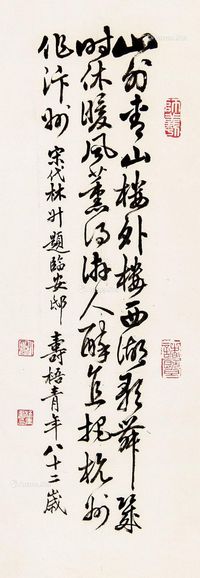 山外青山樓外樓西湖歌舞幾
時休暖風薰得游人醉直把杭州
作汴州 宋代林升題臨安邸 壽梧青年八十二歲